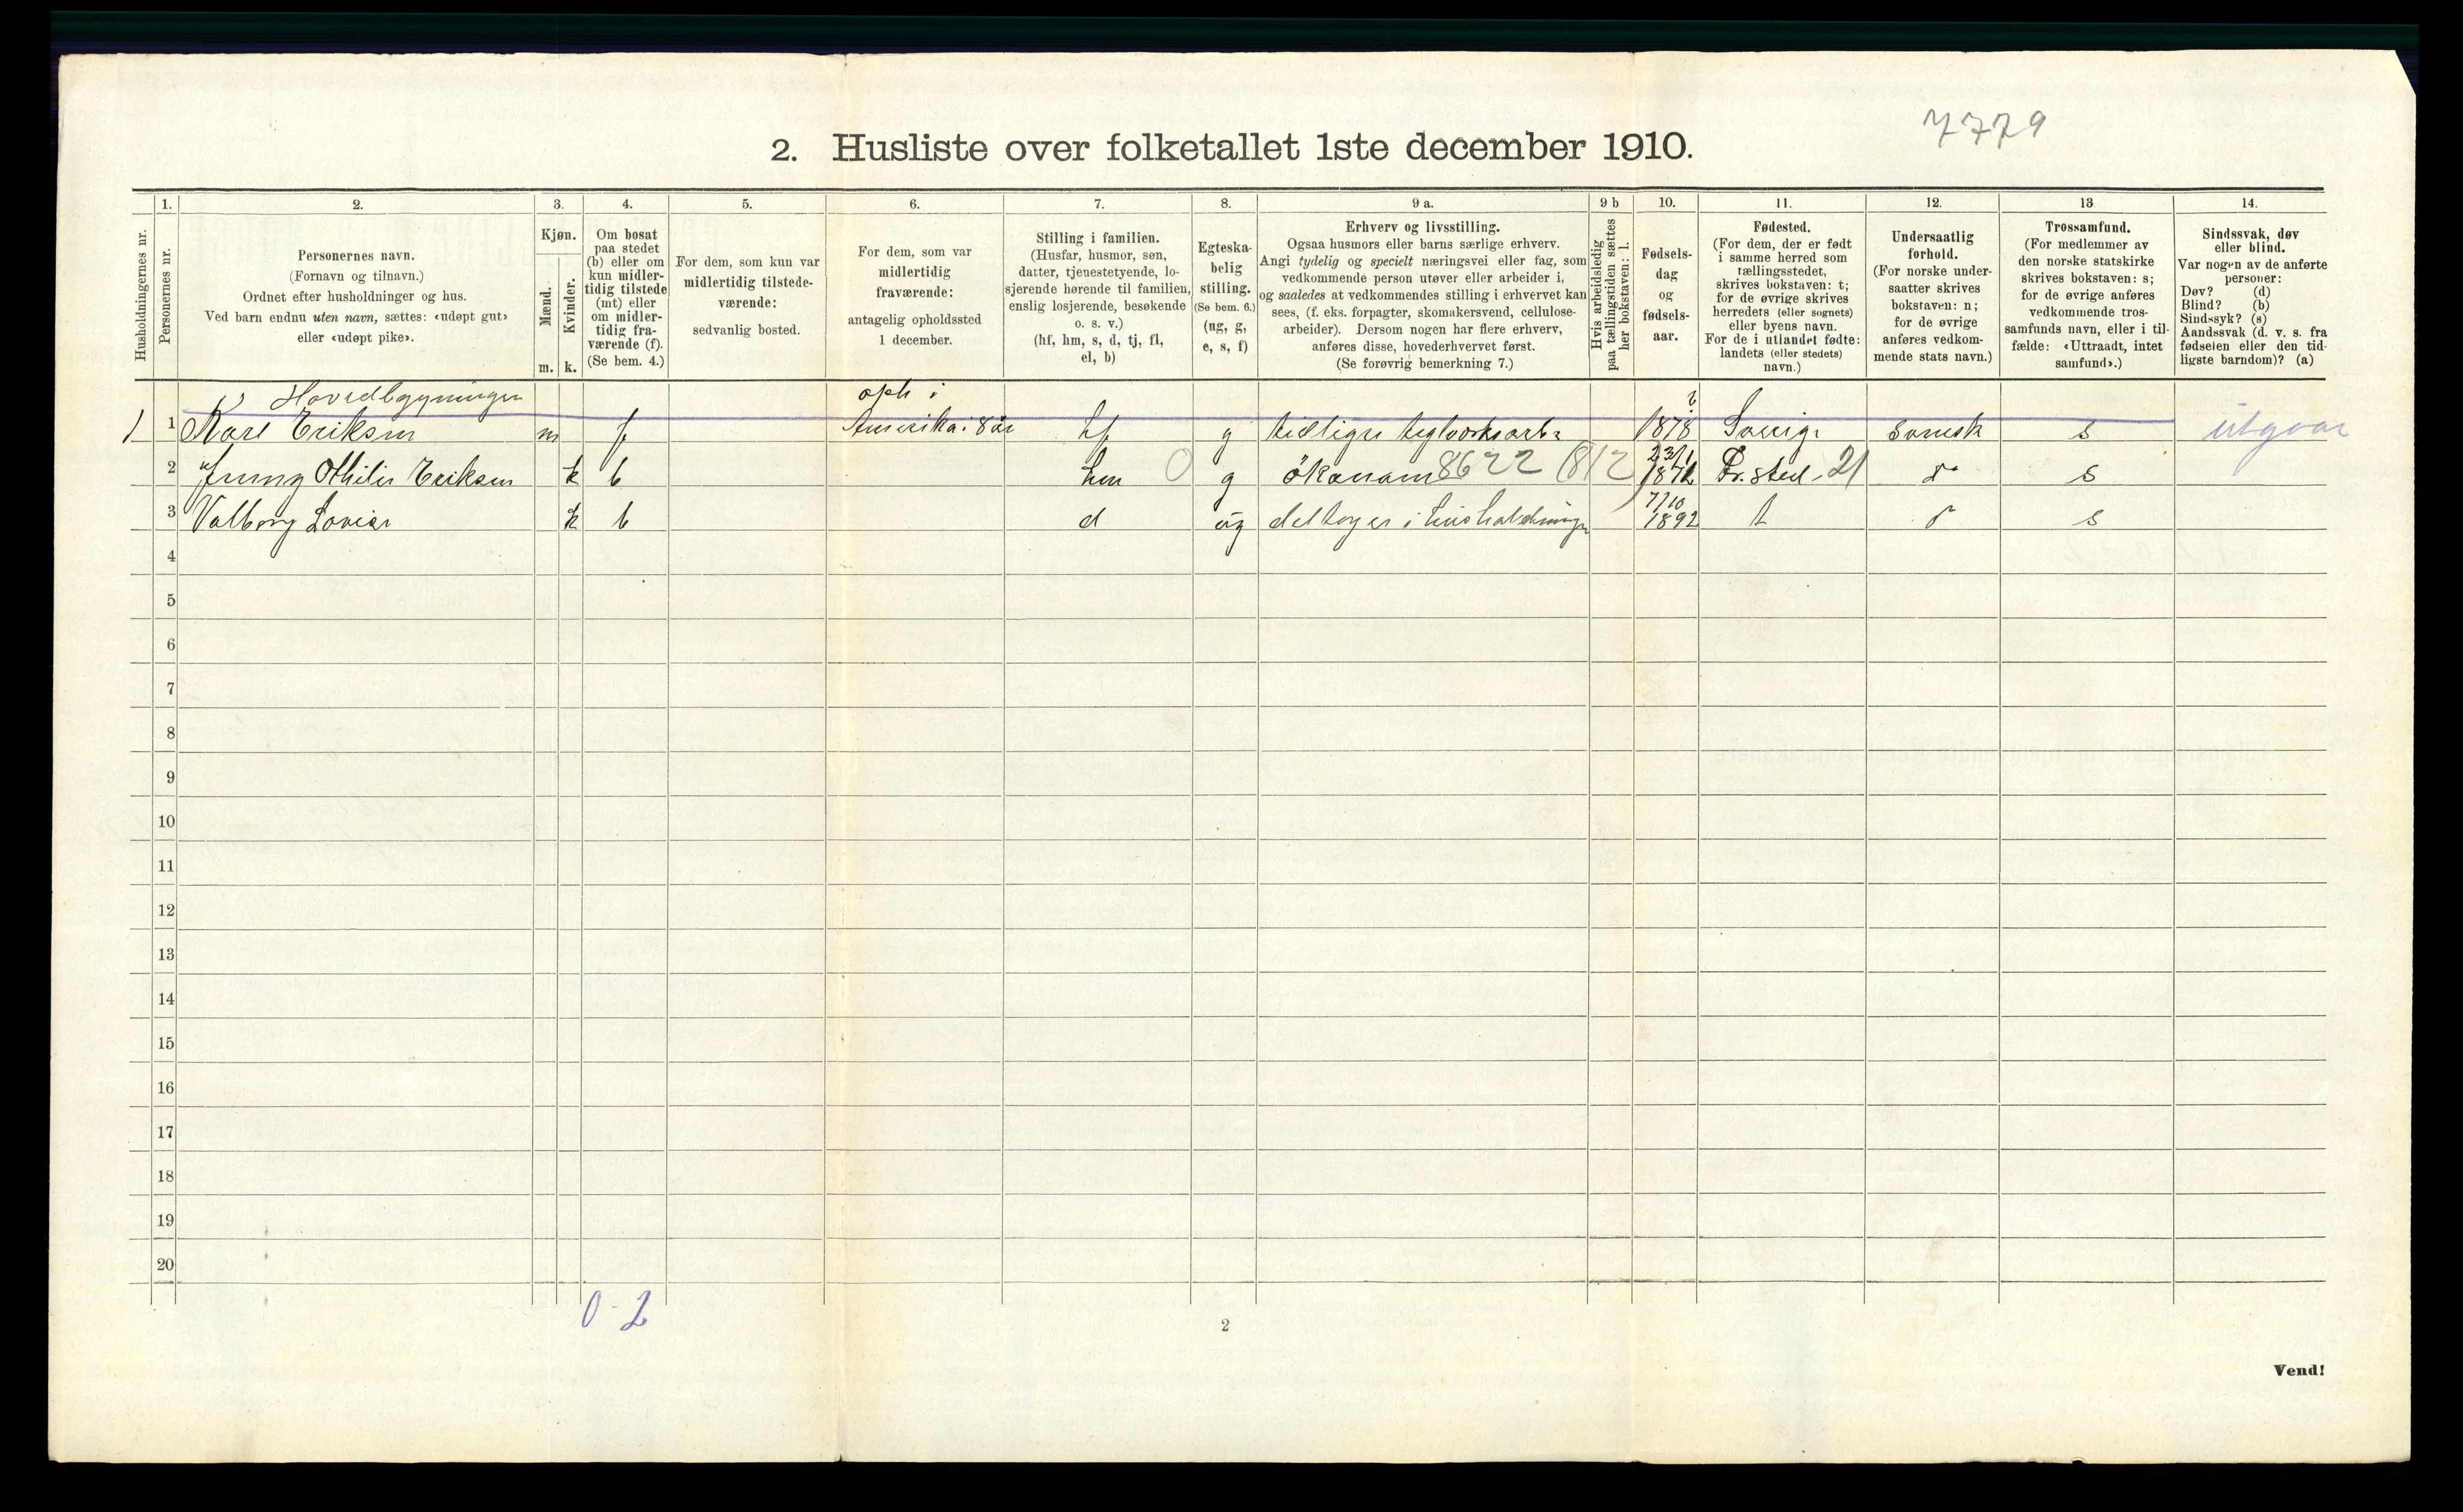 7779
2. Husliste over folketallet 1ste december 1910.
Husholdningernes nr.
1.
Personernes nr.
2.
Personernes navn.
(Fornavn og tilnavn.)
Ordnet efter husholdninger og hus.
Ved barn endnu uten navn, sættes: «udøpt gut»
eller «udøpt pike».
3.
Kjøn.
Mænd.
Kvinder.
m. k.
4.
Om bosat
paa stedet
(b) eller om
kun midler-
tidig tilstede
(mt) eller
om midler-
tidig fra-
værende (f).
(Se bem. 4.)
5.
For dem, som kun var
midlertidig tilstede-
værende:
sedvanlig bosted.
6.
For dem, som var
midlertidig
fraværende:
antagelig opholdssted
1 december.
7.
Stilling i familien.
(Husfar, husmor, søn,
datter, tjenestetyende, lo-
sjerende hørende til familien,
enslig losjerende, besøkende
o. s. v.)
(hf, hm, s, d, tj, fl,
el, b)
8.
Egteska-
belig
stilling.
(Se bem. 6.)
(ug, g,
e, s, f)
9 a.
Erhverv og livsstilling.
Ogsaa husmors eller barns særlige erhverv.
Angi tydelig og specielt næringsvei eller fag, som
vedkommende person utøver eller arbeider i,
og saaledes at vedkommendes stilling i erhvervet kan
sees, (f. eks. forpagter, skomakersvend, cellulose-
arbeider). Dersom nogen har flere erhverv,
anføres disse, hovederhvervet først.
(Se forøvrig bemerkning 7.)
9 b
Hvis arbeidsledig
paa tællingstiden sættes
her bokstaven: l.
10.
Fødsels-
dag
og
fødsels-
aar.
11.
Fødested.
(For dem, der er født
i samme herred som
tællingsstedet,
skrives bokstaven: t;
for de øvrige skrives
herredets (eller sognets)
eller byens navn.
For de i utlandet fødte:
landets (eller stedets)
navn.)
12.
Undersaatlig
forhold.
(For norske under-
saatter skrives
bokstaven: n;
for de øvrige
anføres vedkom-
mende stats navn.)
13
Trossamfund.
(For medlemmer av
den norske statskirke
skrives bokstaven: s;
for de øvrige anføres
vedkommende tros-
samfunds navn, eller i til-
fælde: «Uttraadt, intet
samfund».)
14.
Sindssvak, døv
eller blind.
Var nogen av de anførte
personer:
Døv? (d)
Blind? (b)
Sindssyk? (s)
Aandssvak (d. v. s. fra
fødselen eller den tid-
ligste barndom)? (a)
Hovedbygningen oph i ?
1 1 Karl Eriksen m f Amerika i 8 år hf g tidligere teglværksarb. 1878 Sverige svensk s utgaar
2 Othilie Eriksen k b hm 0 g økonom 8622 (812) 23/1 1872 Fr.sted 21 s
3 Valborg Lovise k b d ug deltager i husholdningen 7/10 1892 t s
4
5
6
7
8
9
10
11
12
13
14
15
16
17
18
19
20
0-2
2
Vend!